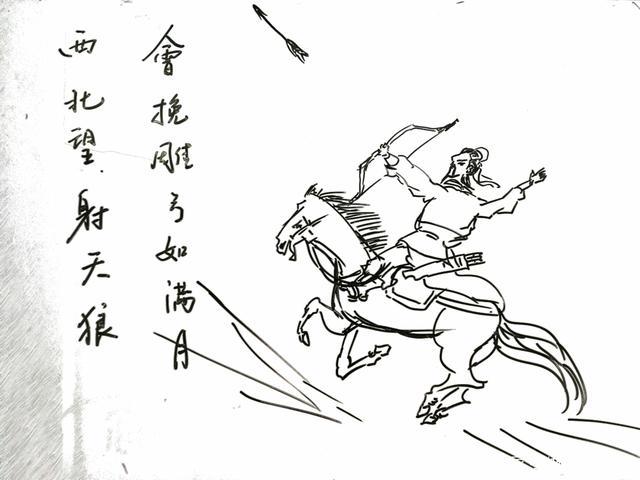 會挽雕弓如满月
西北望射天狼